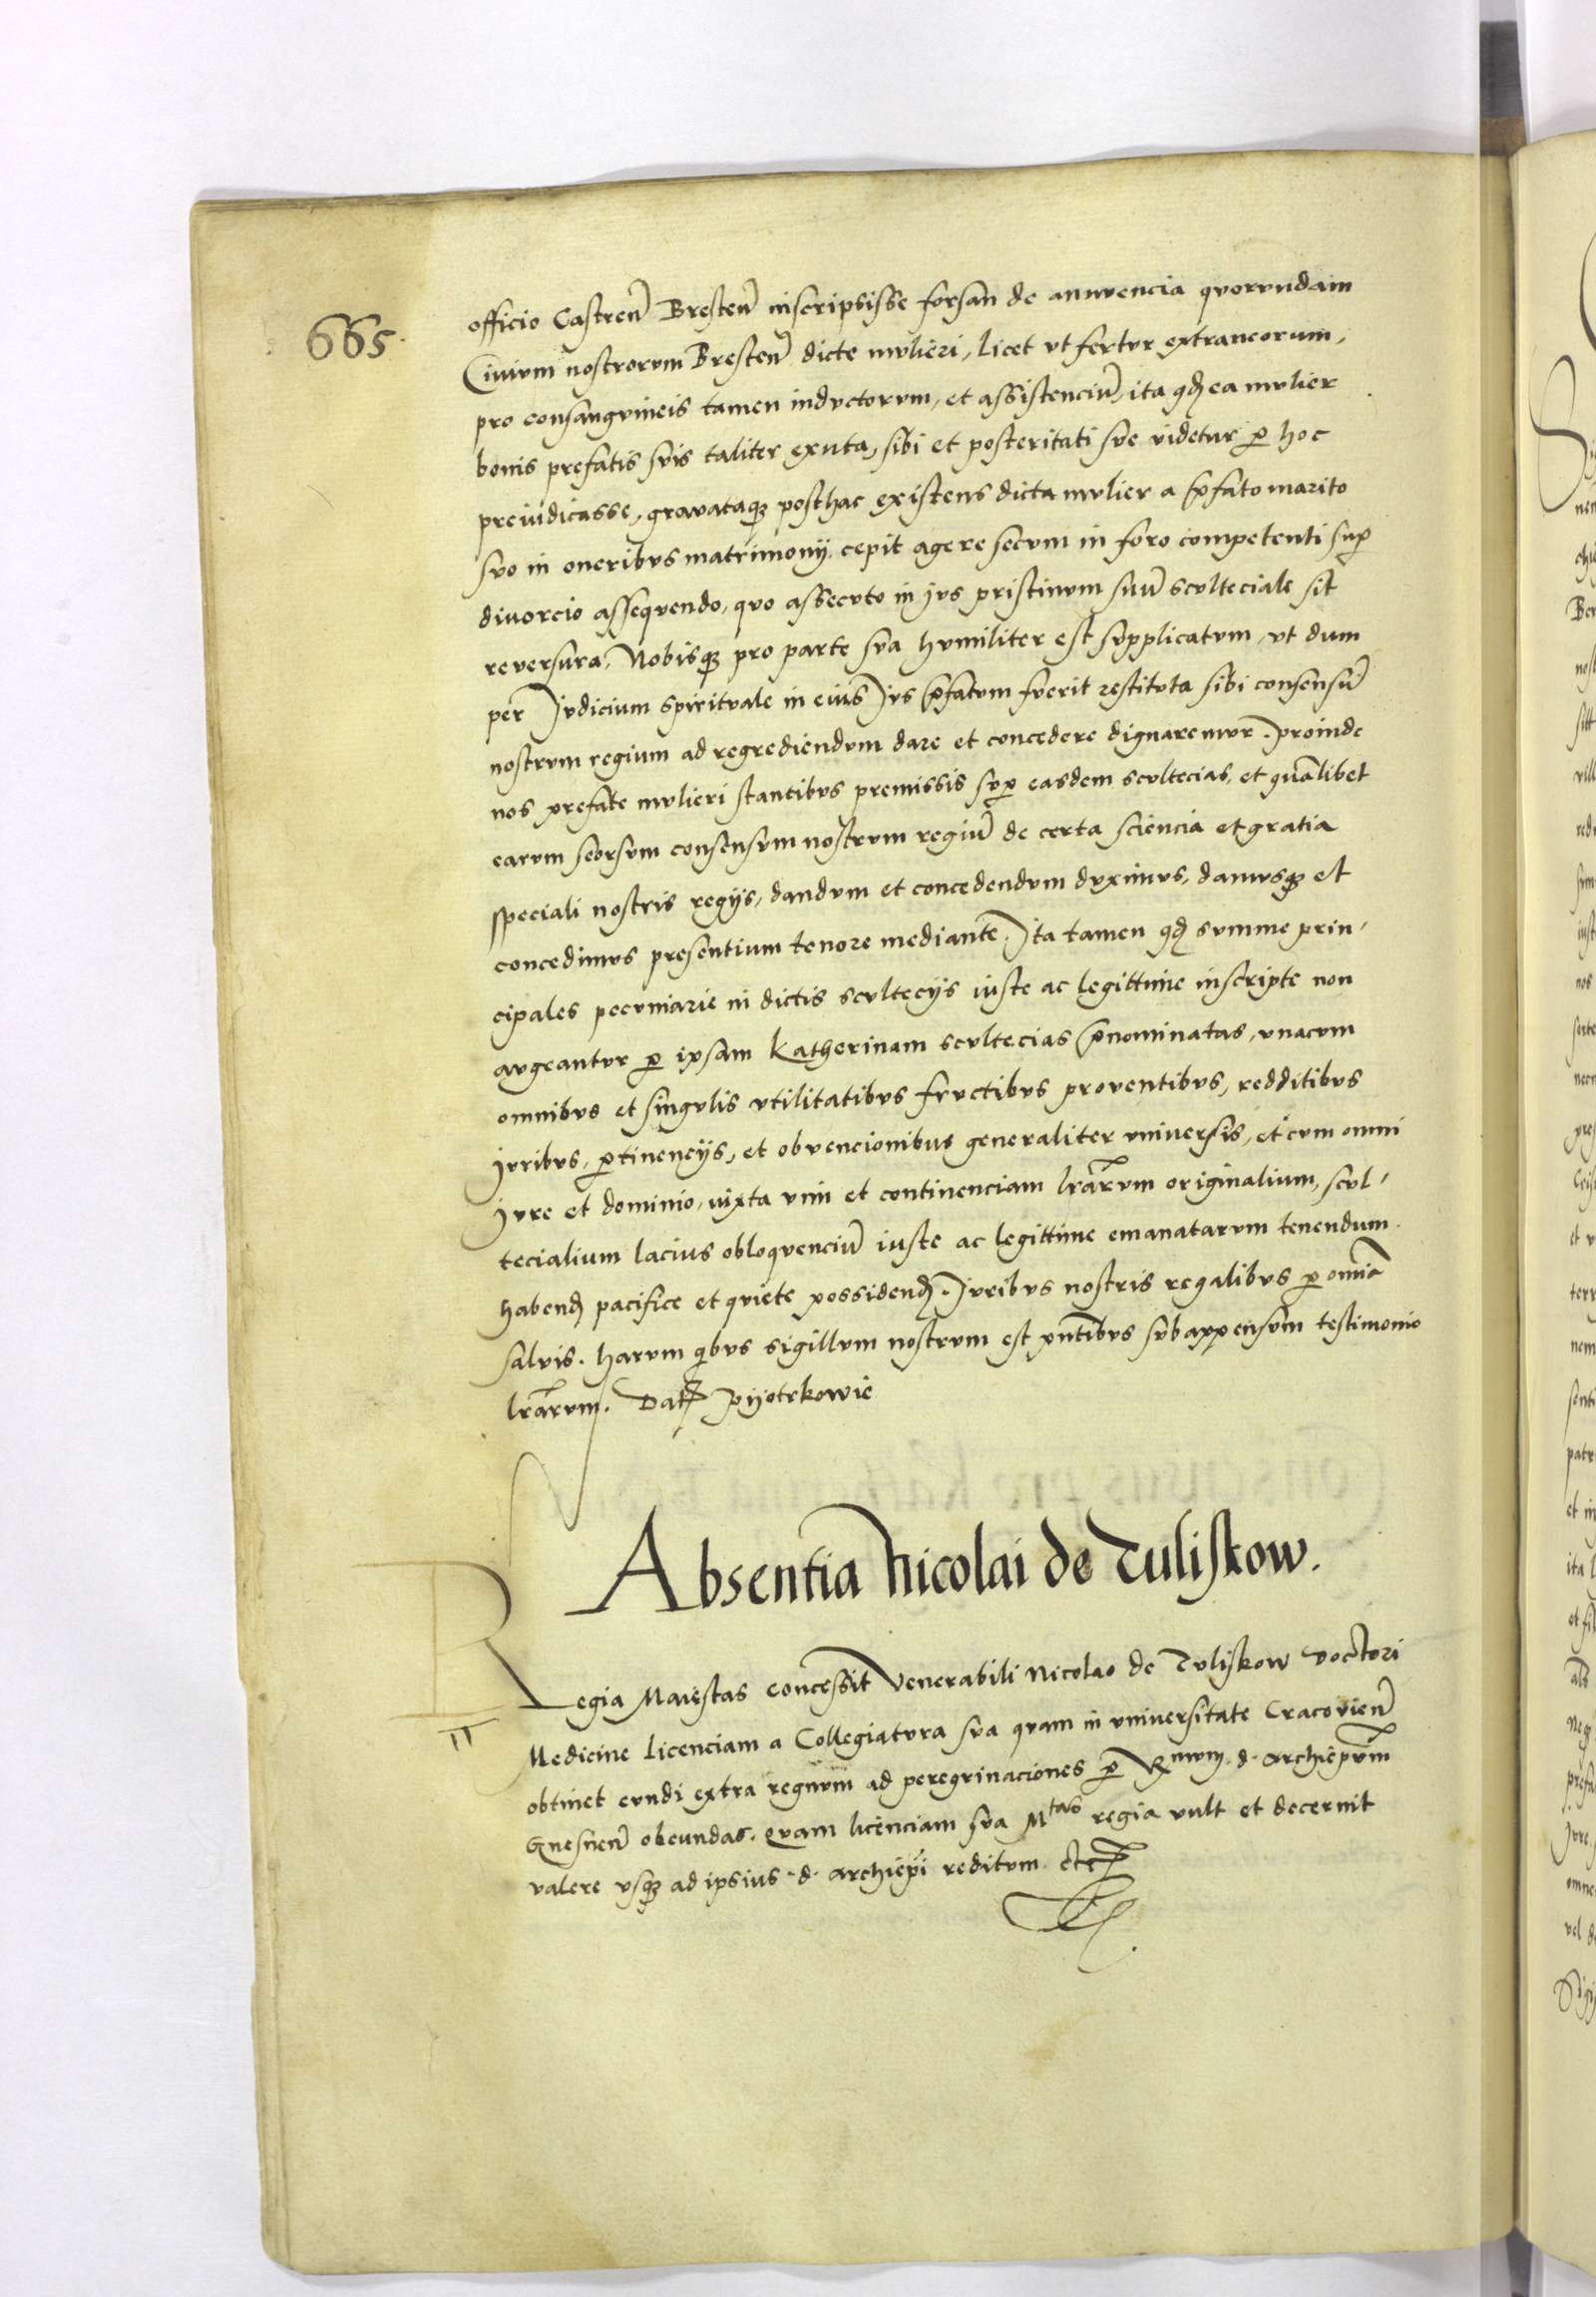 665.
officio Castreñ Bresteñ inscripsisse forsan de annuencia quorundam
Civium nostrorum Bresteñ dicte mulieri, licet ut fertur extraneorum,
pro consanguineis tamen inductorum, et assistenciũ, ita qđ ea mulier
bonis prefatis suis taliter exuta, sibi et posteritati sue videtur ꝑ hoc
preiudicasse, gravataqꝫ posthac existens dicta mulier a p̃fato marito
suo in oneribus matrimonij cepit agere secum in foro competenti suꝑ
divorcio assequendo, quo assecuto in jus pristinum suũ sculteciale sit
reversura, Nobisqꝫ pro parte sua humiliter est supplicatum, ut dum
per Judicium spirituale in eius Jus p̃fatum fuerit restituta sibi consensũ
nostrum regium ad regrediendum dare et concedere dignaremur̃. Proinde
nos prefate mulieri stantibus premissis suꝑ easdem scultecias, et quãlibet
earum seorsum consensum nostrum regiũ de certa sciencia et gratia
speciali nostris regijs, dandum et concedendum duximus, damusqꝫ et
concedimus presentium tenore mediante. Ita tamen qđ summe prin-
cipales pecuniarie in dictis sculteciis iuste ac legittime inscripte non
augeantur ꝑ ipsam Katherinam scultecias p̃nominatas, unacum
omnibus et singulis utilitatibus fructibus proventibus, redditibus
Juribus, ꝑtinencijs, et obvencionibus generaliter universis, et cum omni
Jure et dominio, iuxta vim et continenciam lr̃arum originalium, scul-
tecialium lacius obloquenciũ iuste ac legittime emanatarum tenendum
habenđ pacifice et quiete possidenđ. Juribus nostris regalibus ꝑ omnĩa
salvis. Harum qibus sigillum nostrum est pñtibus subappensum testimonio
lr̃arum. Datꝭ Pyotrkowie
Absentia Nicolai de Tuliskow.
Regia Maiestas concessit Venerabili Nicolao de Tuliskow doctori
Medicine Licenciam a Collegiatura sua quam in universitate Cracovieñ
obtinet eundi extra regnum ad peregrinaciones ꝑ Rmum d. archiep̃um
Gnesneñ obeundas. Quam licenciam sua Mtas regia vult et decernit
valere usqꝫ ad ipsius d. archiep̃i reditum etcꝭ